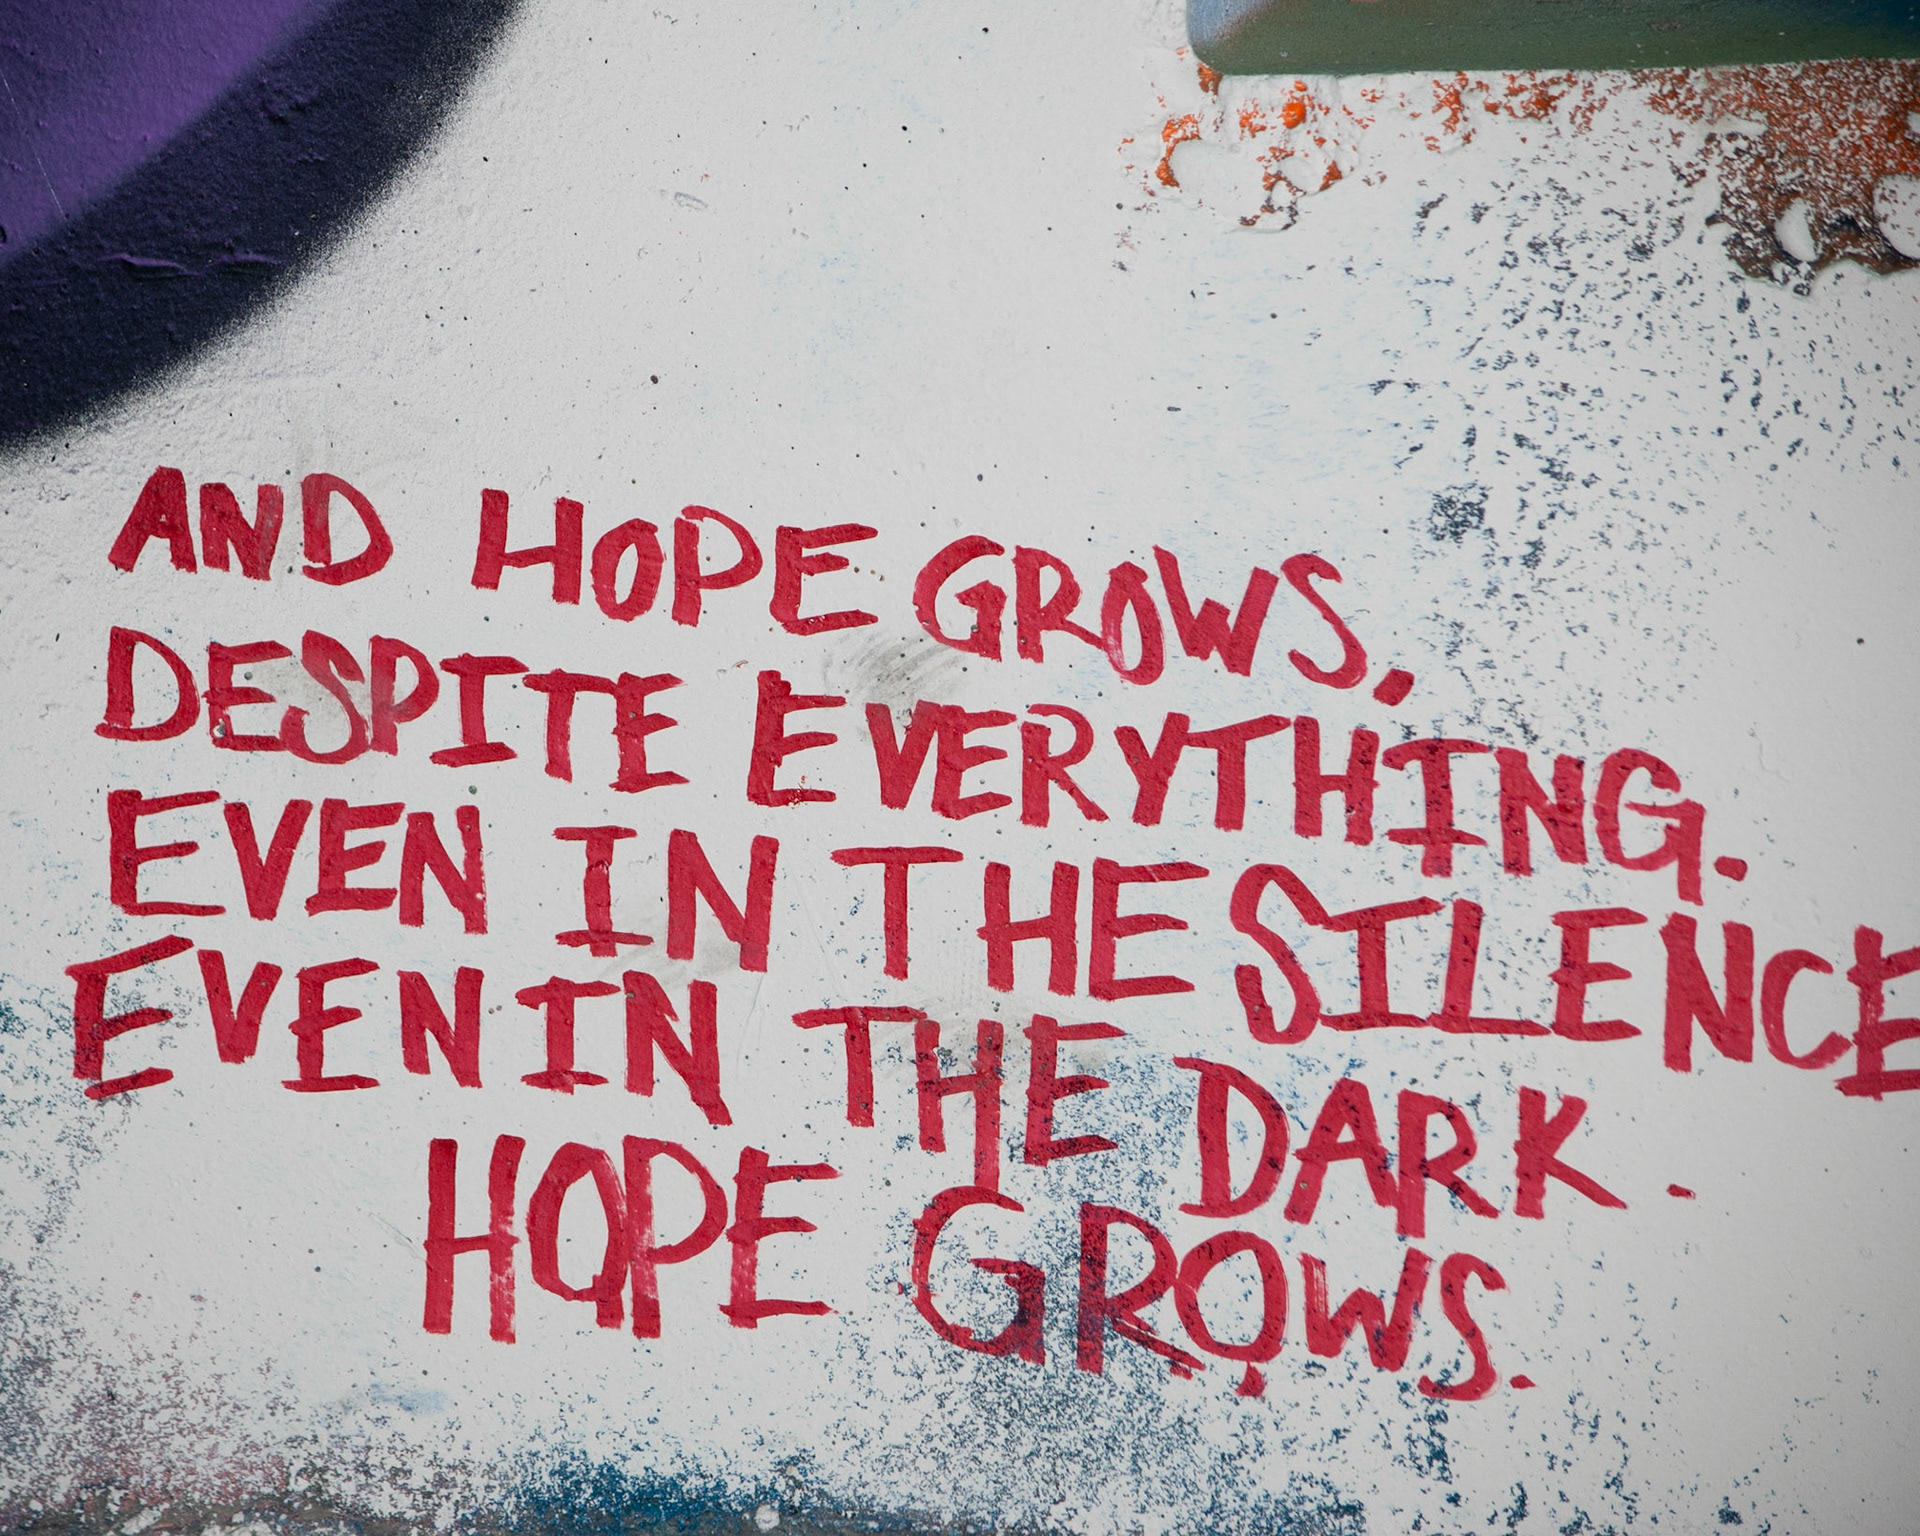 AND HOPE GROWS,
DESPITE EVERYTHING.
EVEN IN THE SILENCE
EVEN IN THE DARK.
HOPE GROWS.